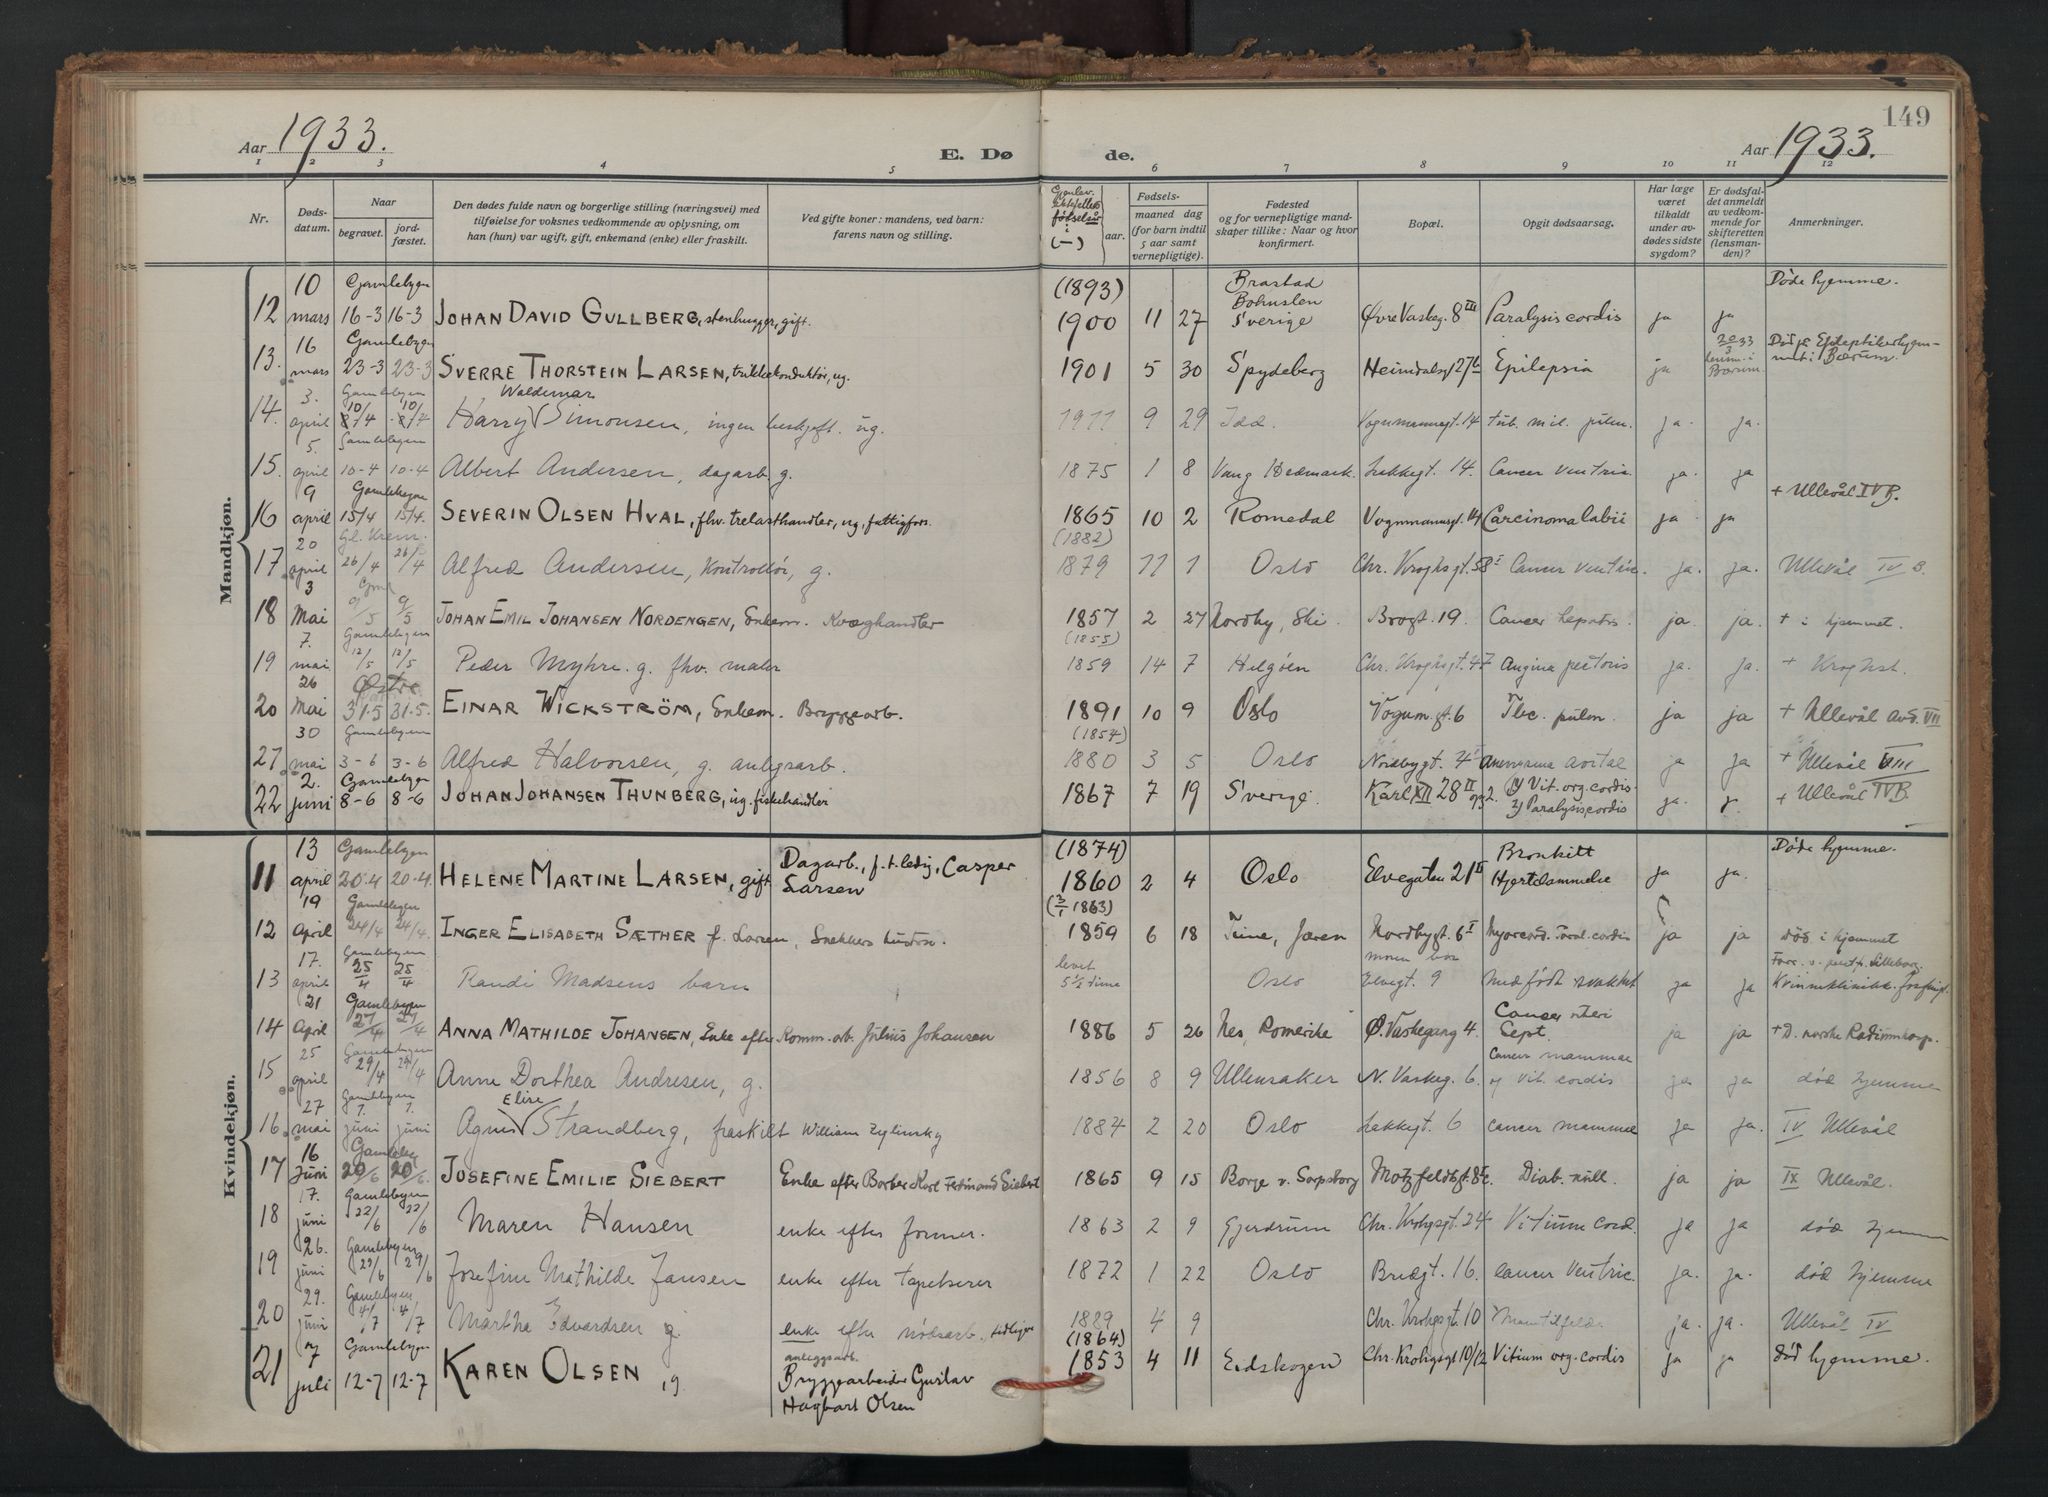 149
Aar 1933.
E. Dø
de.
Aar 1933.
1 2 3 4 5 6 7 8 9 10 11 12
Nr.
Døds-
datum.
Naar
begravet.
jord-
fæstet.
Den dødes fulde navn og borgerlige stilling (næringsvei) med
tilføielse for voksnes vedkommende av oplysning, om
han (hun) var ugift, gift, enkemand (enke) eller fraskilt.
Ved gifte koner: mandens, ved barn:
farens navn og stilling.
(—)
aar.
Fødsels-
maaned dag
(for barn indtil
5 aar samt
vernepligtige).
Fødested
og for vernepligtige mand-
skaper tillike: Naar og hvor
konfirmert.
Bopæl.
Opgit dødsaarsag.
Har læge
været
tilkaldt
under av-
dødes sidste
sygdom?
Er dødsfal-
det anmeldt
av vedkom-
mende for
skifteretten
(lensman-
den)?
Anmerkninger.
Mandkjøn.
10 Gamlebyen (1893) Brastad Døde hjemme.
Bohuslen
12 mars 16-3 16-3 JOHAN DAVID GULLBERG, stenhugger, gift. 1900 11 27 Sverige Øvre Vaskeg. 8 III Paralysis cordis ja ja
16 Gamlebyen 20/3 33
13. mars 23-3 23-3 SVERRE THORSTEIN LARSEN, trikkekonduktør, ug. 1901 5 30 Spydeberg Heimdalsgt 27 b Epilepsia ja Bærum. i Bærum.
3. Gamlebyen Waldemar
14. april 10/4 10/4 Harry Simonsen, ingen beskjeft. ug. 1911 9 29 Idd. Vognmannsgt. 14 tub. mil. pulm. ja. ja.
5. Gamlebyen
15. april 10-4 10-4 Albert Andersen, dagarb. g. 1875 1 8 Vang Hedmark. Lakkegt. 14. Cancer ventric. ja. ja
9 Gamlebyen + Ullevål IV B.
16 april 15/4 15/4. SEVERIN OLSEN HVAL, fhv. trelasthandler, ug. fattigfors. 1865 10 2 Romedal Vognmannsgt. 14 Carcinoma labii ja ja
20 Gl. Krem. (1882)
17 april 26/4 26/4 Alfred Andersen, kontrollør, g. 1879 11 1 Oslo Chr. Kroghsgt. 58 I Cancer ventric. ja. ja. Ullevål IV B.
3
18 Mai 9/5 9/5 JOHAN EMIL JOHANSEN NORDENGEN, Enkem. Kvæghandler 1857 2 27 Nordby, Ski. Brogt. 19. Cancer hepatis. ja. ja. + i hjemmet.
7. Gamlebyen (1855)
19 mai 12/5 12/5 Peder Myhre. g. fhv. maler 1859 14 7 Helgøen Chr. Kroghsgt. 47 Angina pectoris ja. ja. + Kroghst.
26 Østre
20 Mai 31.5 31.5. EINAR WICKSTRÖM, Enkem. Bryggearb. 1891 10 9 Oslo Vognm. gt. 6 Tbc. pulm. ja ja + Ullevål Avd. VII
30 Gamlebyen (1854)
21 mai 3-6 3-6 Alfred Halvorsen, g. anlegsarb. 1880 3 5 Oslo Nordbygt. 4 I ja ja + Ullevål VIII
2. Gamlebyen
22 juni 8-6 8-6 JOHAN JOHANSEN THUNBERG, ug. fiskehandler 1867 7 19 Sverige. Karl XII 28 II opg 2. 1) Vit. org. cordis. ja. + Ullevål IV B.
2) Paralysis cordis
Kvindekjøn.
13 Gamlebyen Dagarb., f. t. ledig, Casper (1874) Bronkitt Døde hjemme.
11 april 20-4 20-4. HELENE MARTINE LARSEN, gift Larsen 1860 2 4 Oslo Elvegaten 21 II Hjertelammelse ja ja.
19 Gamlebyen (3/1 1863)
12 April 24/4 24/4. INGER ELISABETH SÆTHER f. Larsen, Snekkers hustru. 1859 6 18 Time, Jæren Nordbygt. 6 I ja ja død i hjemmet
17. Gamlebyen levet
13 april 25/4 25/4 Randi Madsens barn 5 1/2 time Oslo Elvegt. 9 medfødt svakhet ja ja
21 Gamlebyen Cancer uteri
14 April 27/4 27/4 ANNA MATHILDE JOHANSEN, Enke efter Komm. arb. Julius Johansen 1886 5 26 Nes, Romerike Ø. Vaskegang 4. Sept. ja ja + D. norske Radiumhosp.
25 Gamlebyen cancer mammae
15 april 29/4 29/4 Anne Dorthea Andresen, g. 1856 8 9 Ullensaker N. Vaskeg. 6. vit. cordis ja ja død hjemme
27 Gamlebyen Elise
16. mai 1. juni 1. juni Agnes Strandberg, fraskilt William Zylinsky 1884 2 20 Oslo Lakkegt. 6 cancer mammae ja ja. IV Ullevål
16 Gamlebyen
17 Juni 20/6 20/6. JOSEFINE EMILIE SIEBERT Enke efter Barber Karl Ferdinand Siebert 1865 9 15 Borge v. Sarpsborg Motzfeldtsgt. 8 Diab. mell. ja ja IX Ullevål.
17. Gamlebyen
18 juni 22/6 22/6 Maren Hansen enke efter former. 1863 2 9 Gjerdrum Chr. Krohgsgt. 24 Vitium cord. ja ja død hjemme
26. Gamlebyen
19 juni 29/6 29/6 Josefine Mathilde Jansen enke efter tapetserer 1872 1 22 Oslo Bredgt. 16. cancer ventric. ja. ja. død hjemme
29. Gamlebyen
20 juni 4/7 4/7 Martha Edvardsen g. enke efter nødsarb. 1889 4 9 Chr. Krohgsgt. 10 ja. ja. Ullevål IV
7 Gamlebyen anleggsarb. (1864)
21 juli 12-7 12-7 KAREN OLSEN g. Bryggearbeider Gustav 1853 4 11 Eidskogen Chr. Krohgsgt 10/12 Vitium org. cordis ja ja død hjemme.
Hagbart Olsen